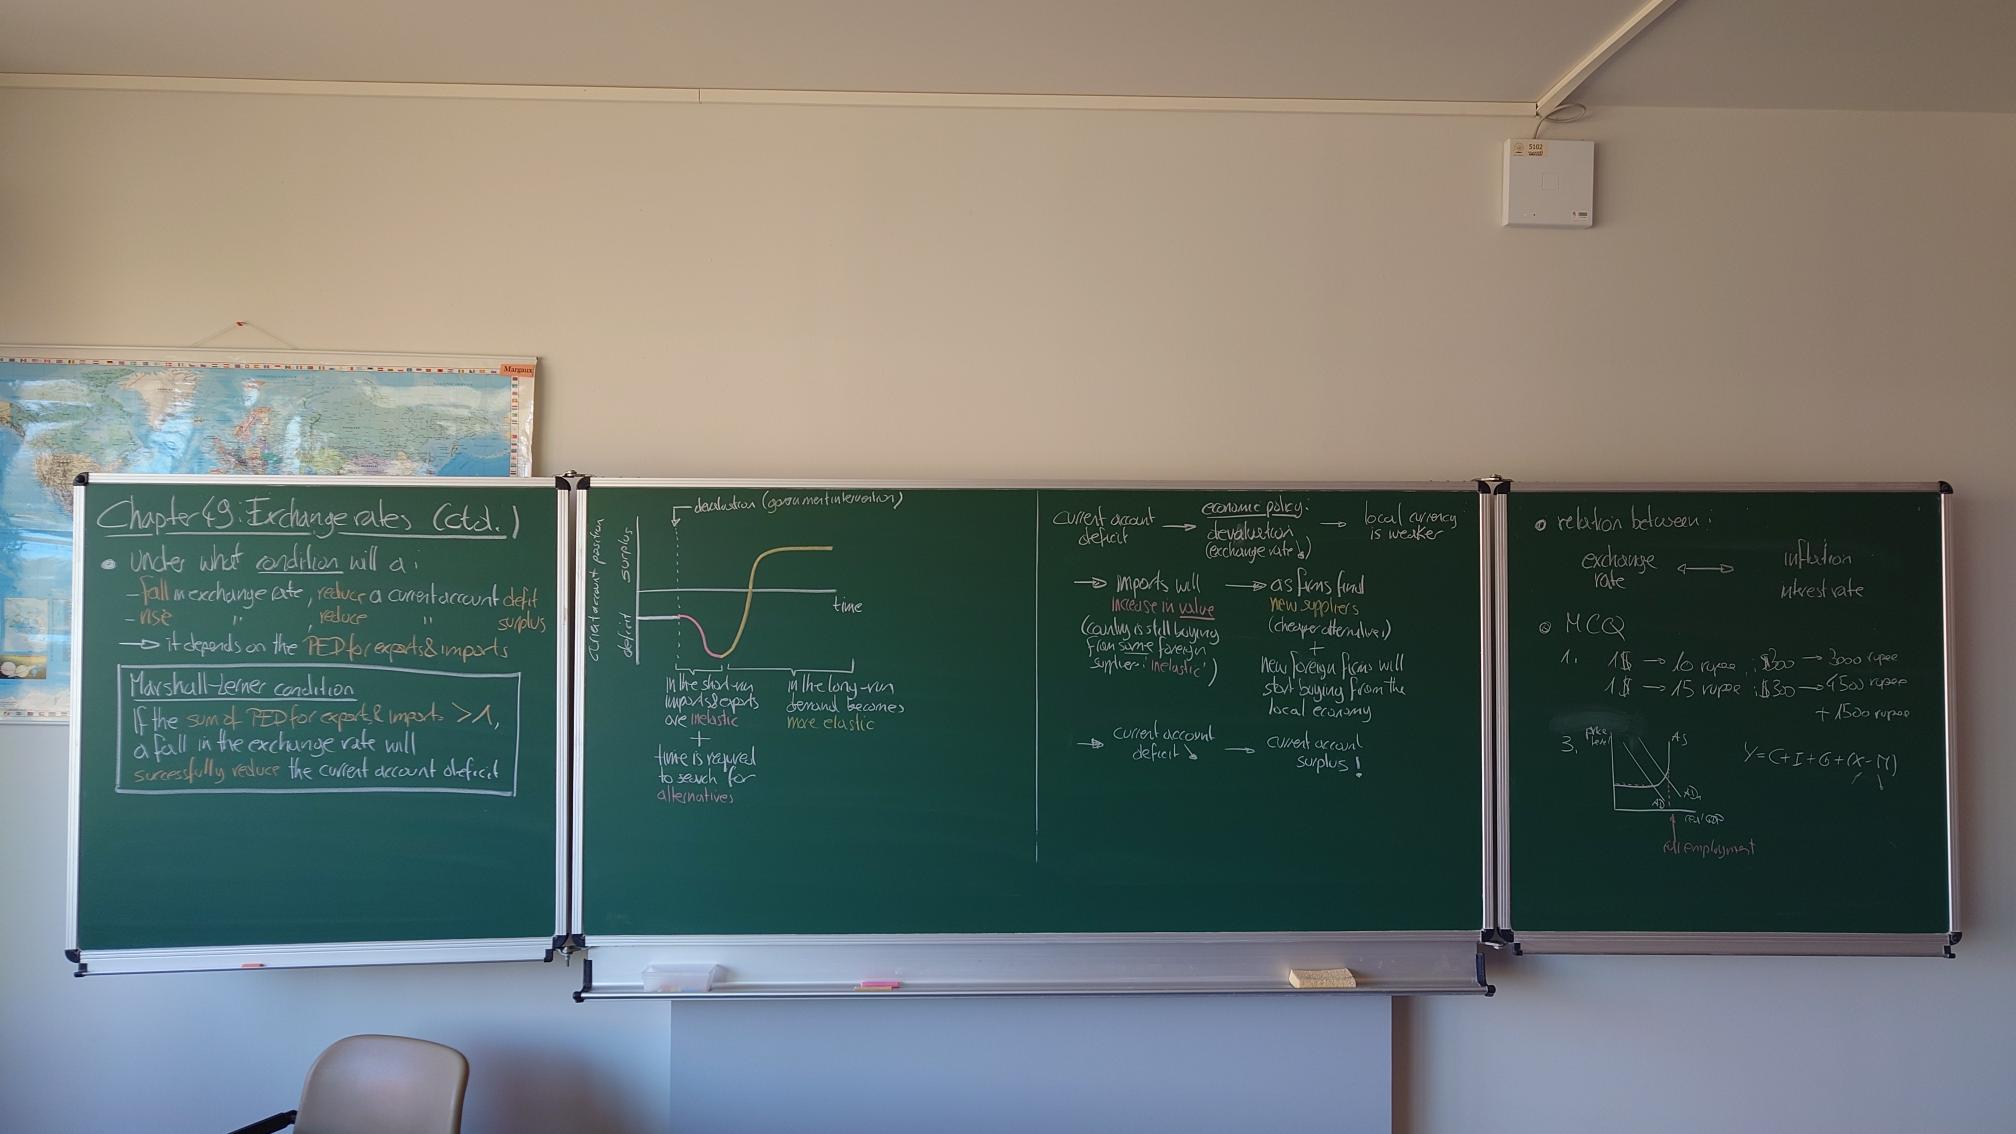 Margaux
5102
Chapter 49: Exchange rates (ctd.)
• Under what condition will a:
- fall in exchange rate, reduce a current account defit
- rise " , reduce " surplus
→ it depends on the PED for exports & imports
Marshall-Lerner condition
If the sum of PED for exports & imports >1,
a fall in the exchange rate will
successfully reduce the current account deficit
devaluation (government intervention)
surplus
deficit
time
in the short-run
imports & exports
are inelastic
+
time is required
to search for
alternatives
in the long-run
demand becomes
more elastic
current account
deficit
→
economic policy:
devaluation
(exchange rate ↓)
→
local currency
is weaker
→ imports will
increase in value
(country is still buying
from same foreign
supplier: 'inelastic')
→ as firms find
new suppliers
(cheaper alternatives)
+
new foreign firms will
start buying from the
local economy
→ current account
deficit ↓
→ current account
surplus!
• relation between:
exchange
rate
↔
inflation
interest rate
• MCQ
1. 1$ → 10 rupee ; $300 → 3000 rupee
1$ → 15 rupee ; $300 → 4500 rupee
+ 1500 rupee
3.
price
level
AS
AD
AD₁
real GDP
full employment
Y = C + I + G + (X - M)